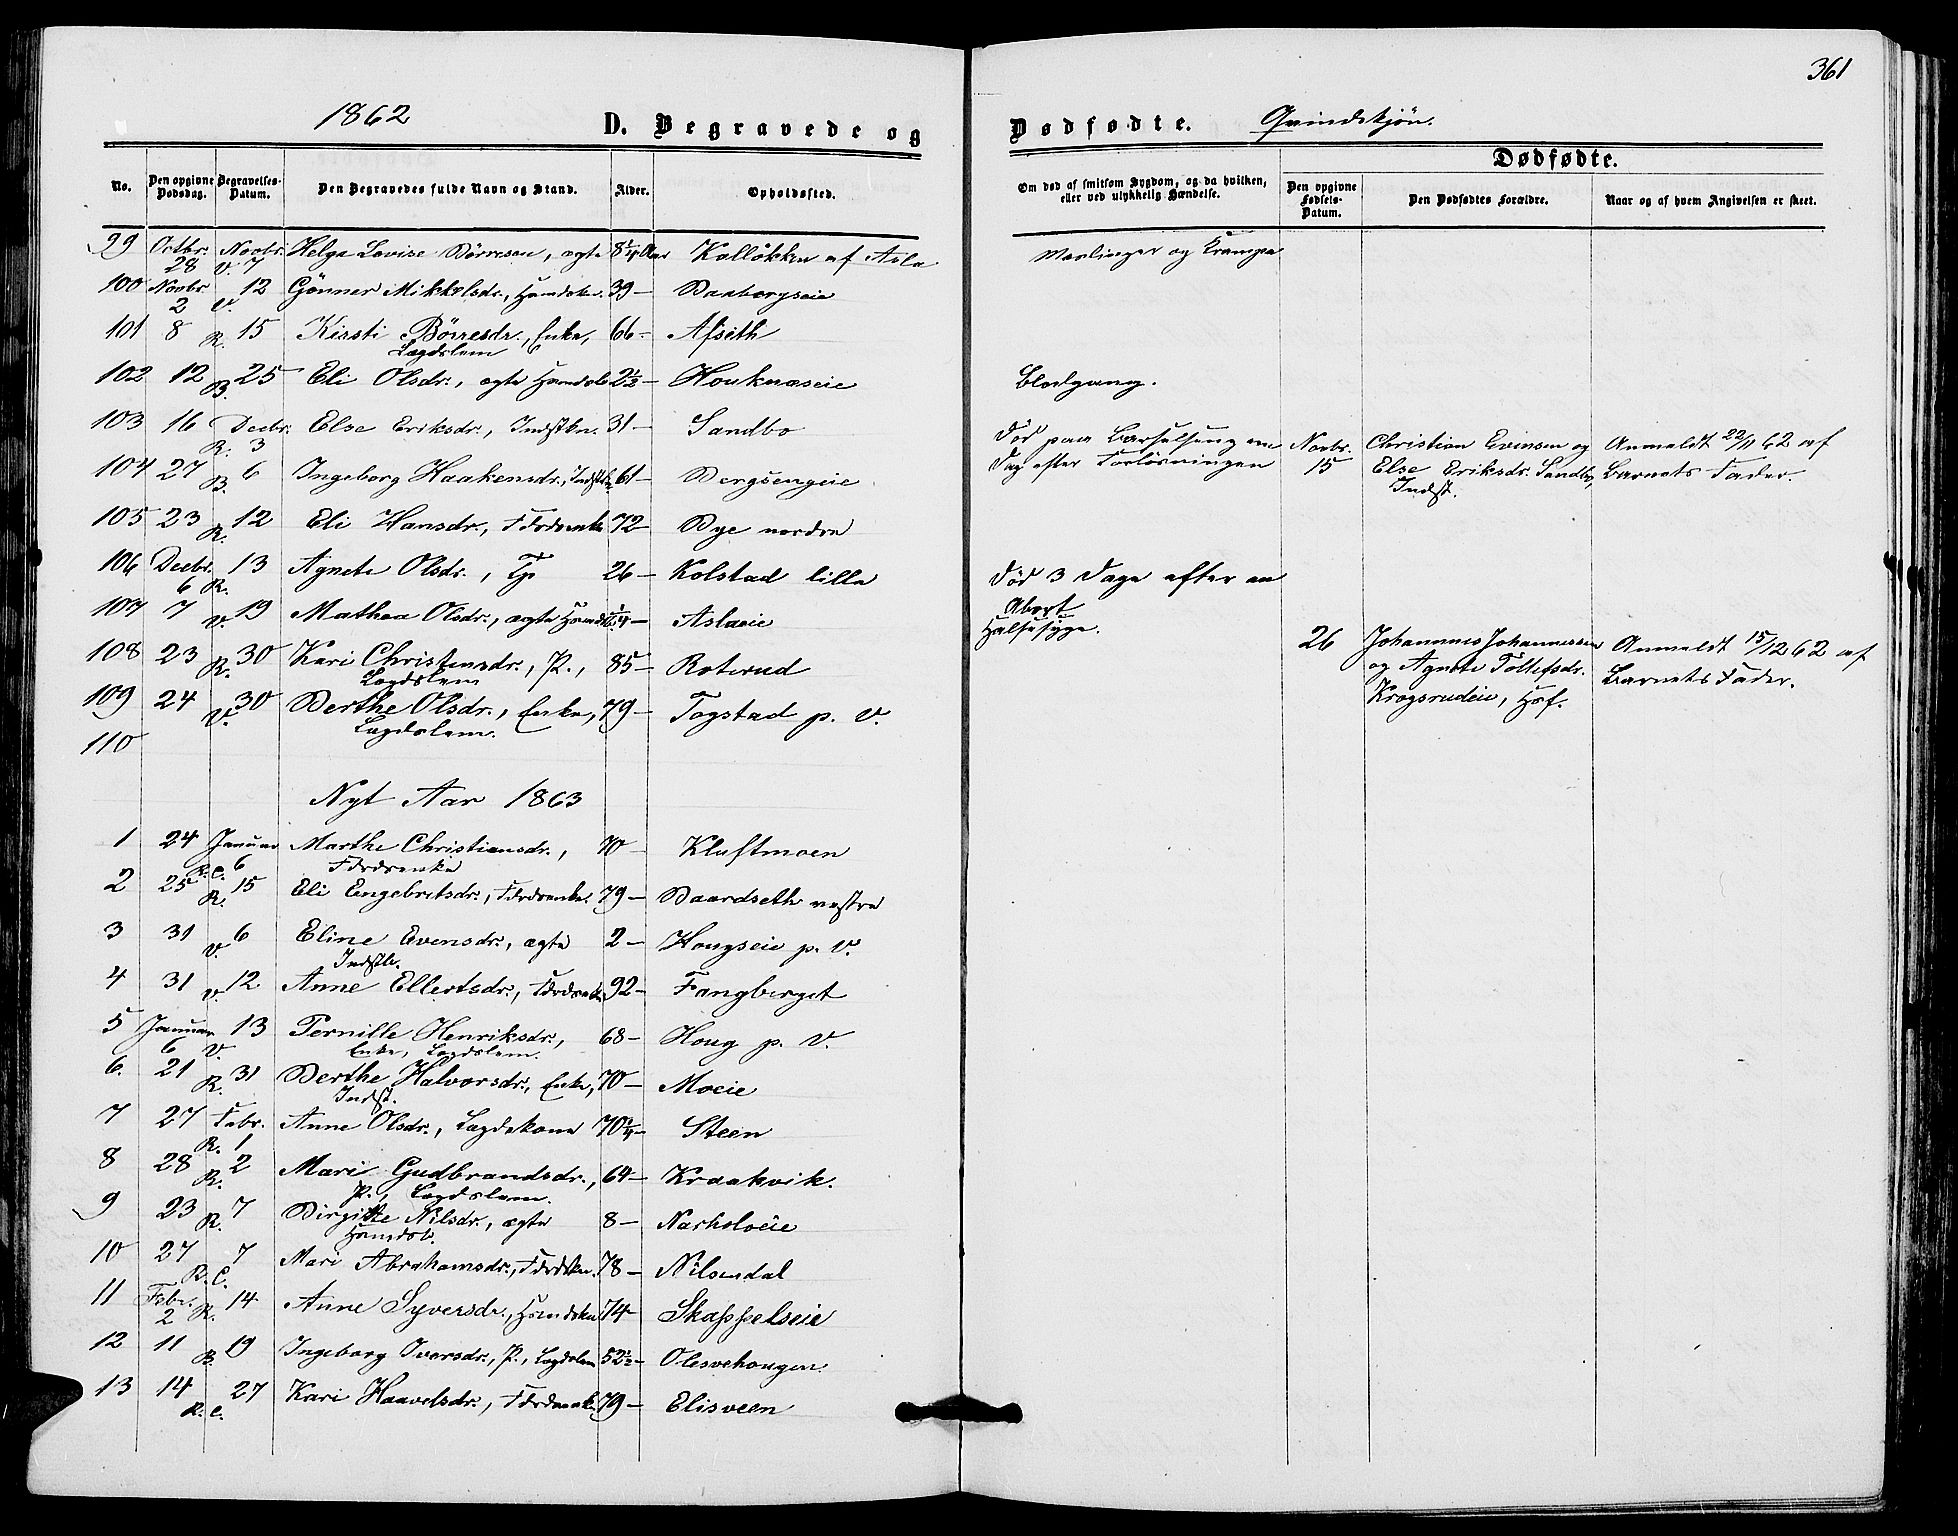 361
1862 D. Begravede og Dødfødte. Qvindekjön.
Dødfødte.
No. Den opgivne Dødsdag. Begravelses-Datum. Den Begravedes fulde Navn og Stand. Alder. Opholdssted. Om død af smitsom Sygdom, og da hvilken, eller ved ulykkelig Hændelse. Den opgivne Fødsels-Datum. Den Dødfødtes Forældre. Naar og af hvem Angivelsen er skeet.
99 Octbr. 28 Novbr. V. 7 Helga Lovise Börresen, ægte 8 1/4 Aar Kalløkken af Asla Mæslinger og Krampe
100 Novbr. 2 V. 12 Gönner Mikkelsdr., Hsmdskn. 39 — Baabergseie
101 8 R. 15 Kirsti Börresdr., Enke, Lægdslem 66 — Afseth
102 12 B. 25 Eli Olsdr., ægte 2 1/2 — Houknæseie Blodgang.
103 16 Decbr. R. 3 Else Eriksdr., Indstkn. 31 — Sandbo Död paa Barselseng en Dag efter Forlösningen
Novbr. 15 Christian Evensen og Else Eriksdr. Sandbo, Indst. Anmeldt 22/11 62 af Barnets Fader.
104 27 B. 6 Ingeborg Haakensdr., 61 — Bergsengeie
105 23 R. 12 Eli Hansdr., Fdrdsenke 72 — Bye nordre
106 Decbr. 6 R. 13 Agnete Olsdr., Tp 26 — Kolstad lille Död 3 Dage efter en Abort
107 7 V. 19 Mathea Olsdr., ægte 1/4 — Aslaeie Halssyge.
26 Johannes Johannessen og Agnete Tollefsdr. Krogsrudeie, Hsf. Anmeldt 15/12 62 af Barnets Fader.
108 23 R. 30 Kari Christensdr., P., Lægdslem 85 — Roterud
109 24 V. 30 Berthe Olsdr., Enke, Lægdslem. 79 — Togstad p. V.
110
Nyt Aar 1863
1 24 Januar R. C. 6 Marthe Christiansdr., Fdrdsenke 70 — Kluftmoen
2 25 R. 15 Eli Engebretsdr., Fdrdsenke. 79 — Baardseth vestre
3 31 V. 6 Eline Evensdr., ægte Indstb. 2 — Hougseie p. V.
4 31 V. 12 Anne Ellertsdr., Fdrdsenke 92 — Fangberget
5 Januar 6 V. 13 Pernille Henriksdr., Enke, Lægdslem. 68 — Houg p. V.
6. 21 R. 31 Berthe Halvorsdr., Enke, Indst. 70 — Moeie
7 27 Febr. R. 1 Anne Olsdr., Lægdekone 70 1/4 — Steen
8 28 R. 2 Mari Gudbrandsdr., P., Lægdslem. 64 — Kraakvik.
9 23 R. 7 Birgitte Nilsdr., ægte Hsmdsb. 8 —
10 27 R. C. 7 Mari Abrahamsdr., Fdrdskn. 78 — Nilsendal
11 Febr. 2 R. 14 Anne Syversdr., Hsmdskn 74 — Skappelseie
12 11 B. 19 Ingeborg Iversdr., P., Lægdslem 52 1/2 — Olesvehougen.
13 14 R. C. 27 Kari Haavelsdr., Fdrdsenke. 79 — Elisveen